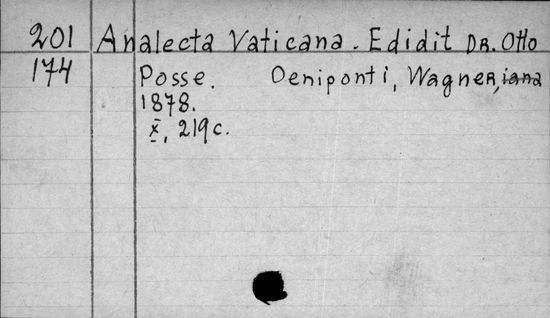 201 Analecta Vaticana. Edidit DR. Otto
174 Posse. Oeniponti, Wagner, iana
1878.
X, 219c.